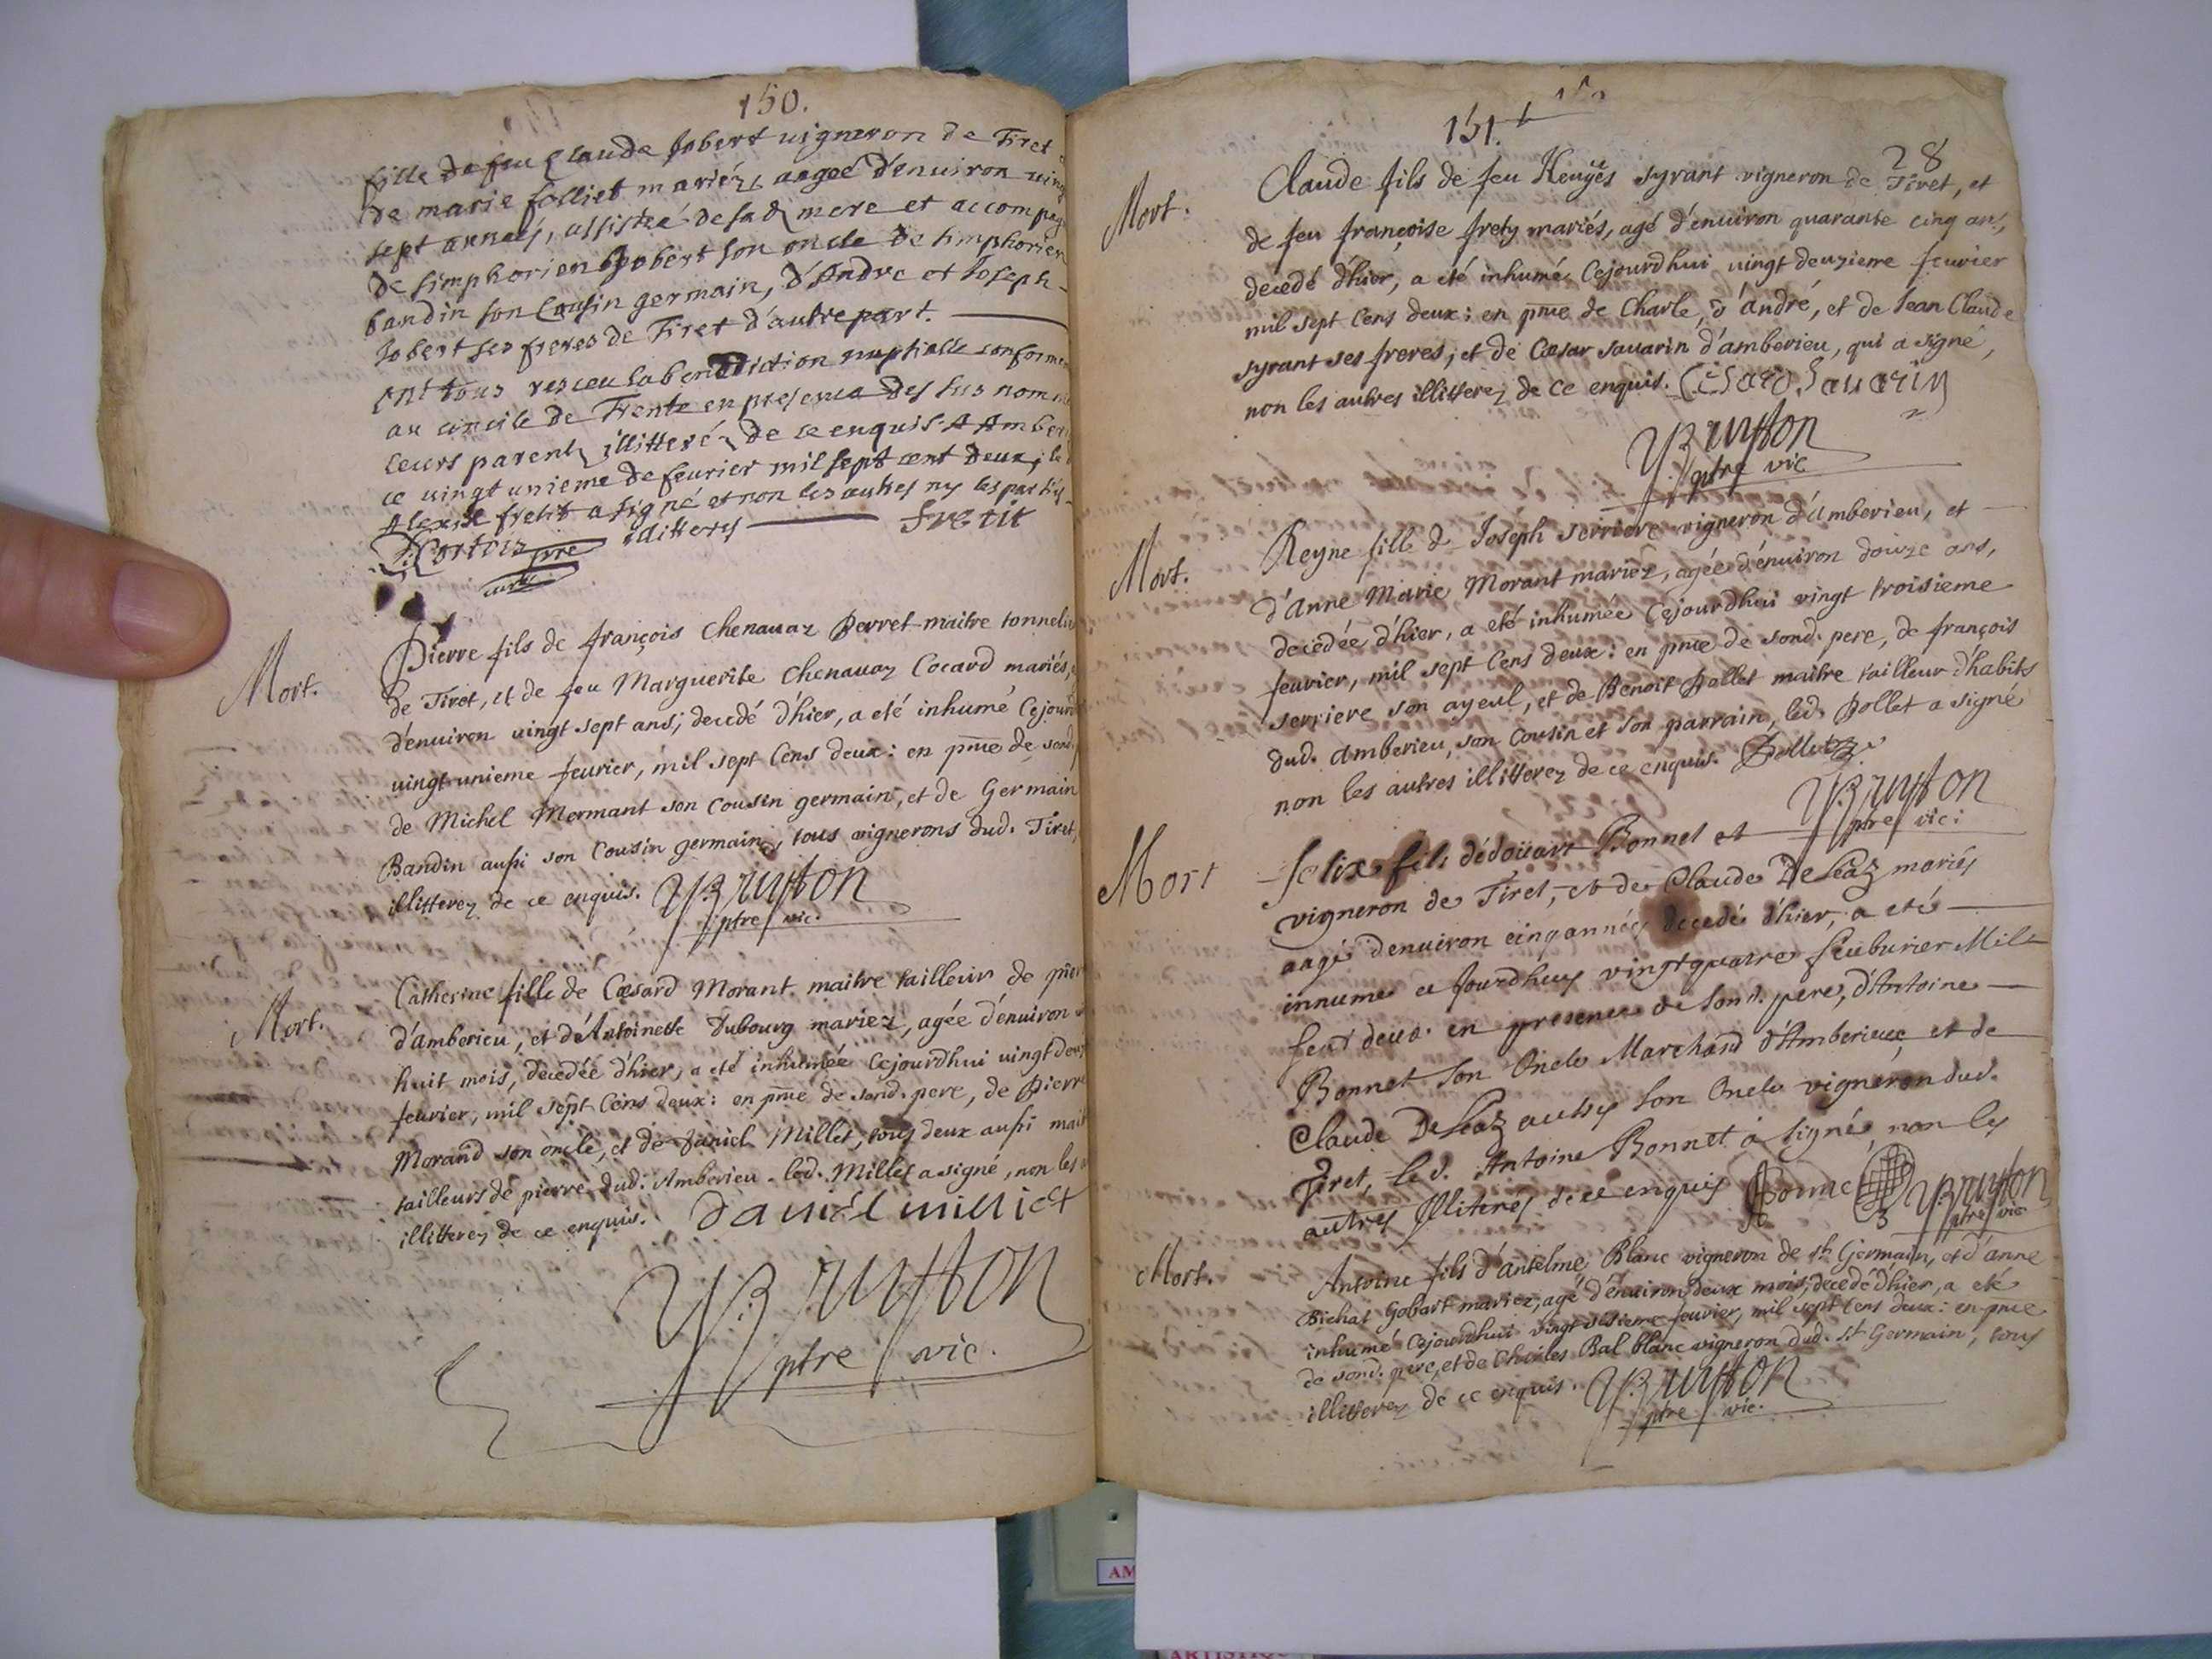 150.
fille de feu Claude Jobert uigneron de Tiret
de marie folliet mariéz, aageé d'enuiron uing
sept anneés, assisteé de sad mere et accompag
de simphorien Jobert son oncle de simphorien
bandin son Cousin germain, d'Andre et Joseph
Jobert ses freres de Tiret d'autre part.
ont tous resceu la benediction nuptialle conforme
au concile de Trente en presence des sus nomme
leurs parentz illitteréz de ce enquis A Amber
ce uingt unieme de feurier mil sept cent deux; le
Alexis fretit a signé et non les autres ny les parties
illitterés
fretit
Cortois pre
curé
Mort.
Pierre fils de françois Chenauaz Perret maitre tonnelie
de Tiret, et de feu Marguerite Chenauaz Cocard mariés,
d'enuiron uingt sept ans; decedé d'hier, a eté inhumé Cejourd
uingt unieme feurier, mil sept Cens deux: en pnce de sond.
de Michel Mormant son Cousin germain, et de Germain
Bandin aussi son Cousin germain, tous vignerons dud. Tiret,
illitterez de ce enquis. Bruston
ptre vic.
Mort.
Catherine fille de Cæsard Morant maitre tailleur de pier
d'amberieu, et d'Antoinette Dubourg mariez, agée d'enuiron
huit mois, decedée d'hier, a eté inhumée Cejourdhui uingt deux
feurier, mil sept Cens deux: en pnce de sond. pere, de Pierre
Morand son oncle, et de Daniel Millet, tous deux aussi mait
tailleurs de pierre dud. Amberieu. led. Millet a signé, non les
illitterez de ce enquis. daniel milliet
Bruston
ptre vic.
151.
28
Mort.
Claude fils de feu syrant vigneron de Tiret, et
de feu françoise frety mariés, agé d'enuiron quarante cinq ans,
decedé d'hier, a eté inhumé Cejourdhui uingt deuxieme feurier
mil sept Cens deux: en pnce de Charle, d'andré, et de Jean Claude
syrant ses freres; et de Cæsar sauarin d'amberieu, qui a signé,
non les autres illitterez de ce enquis. Sauarin
Bruston
ptre vic
Mort.
Reyne fille de Joseph serriere vigneron d'amberieu, et
d'anne Marie Morant mariez, agée d'enuiron douze ans,
decedée d'hier, a eté inhumée Cejourdhui vingt troisieme
feurier, mil sept Cens deux: en pnce de sond. pere, de françois
serriere son ayeul, et de Benoit Pollet maitre tailleur d'habits
dud. amberieu, son Cousin et son parrain, led. Pollet a signé
non les autres illitterez de ce enquis. Pollet
Bruston
ptre vic:
Mort
felix fils dédoüart Bonnet et
vigneron de Tiret, et de Claude DeLeaz mariés
aagé denuiron cinq années decedé d'hier, a eté
innumé ce Jourdhuy vingtquatre feuburier Mil
sept deux. en presence de son d. pere, d'Antoine
Bonnet son Oncle Marchand d'Amberieux, et de
Claude DeLeaz aussy son Oncle vigneron dud.
Tiret, led. Antoine Bonnet a signé, non les
autres Illiterés de ce enquis Bonnet Bruston
ptre vic
Mort.
Antoine fils d'antelme Blanc vigneron de st Germain, et d'anne
Bichat Gobart mariez, agé d'enuiron deux mois, decedé d'hier, a eté
inhumé Cejourdhui vingt sixieme feurier, mil sept Cens deux: en pnce
de sond. pere, et de Charles Bal blanc vigneron dud. st Germain, tous
illitterez de ce enquis. Bruston
ptre vic.